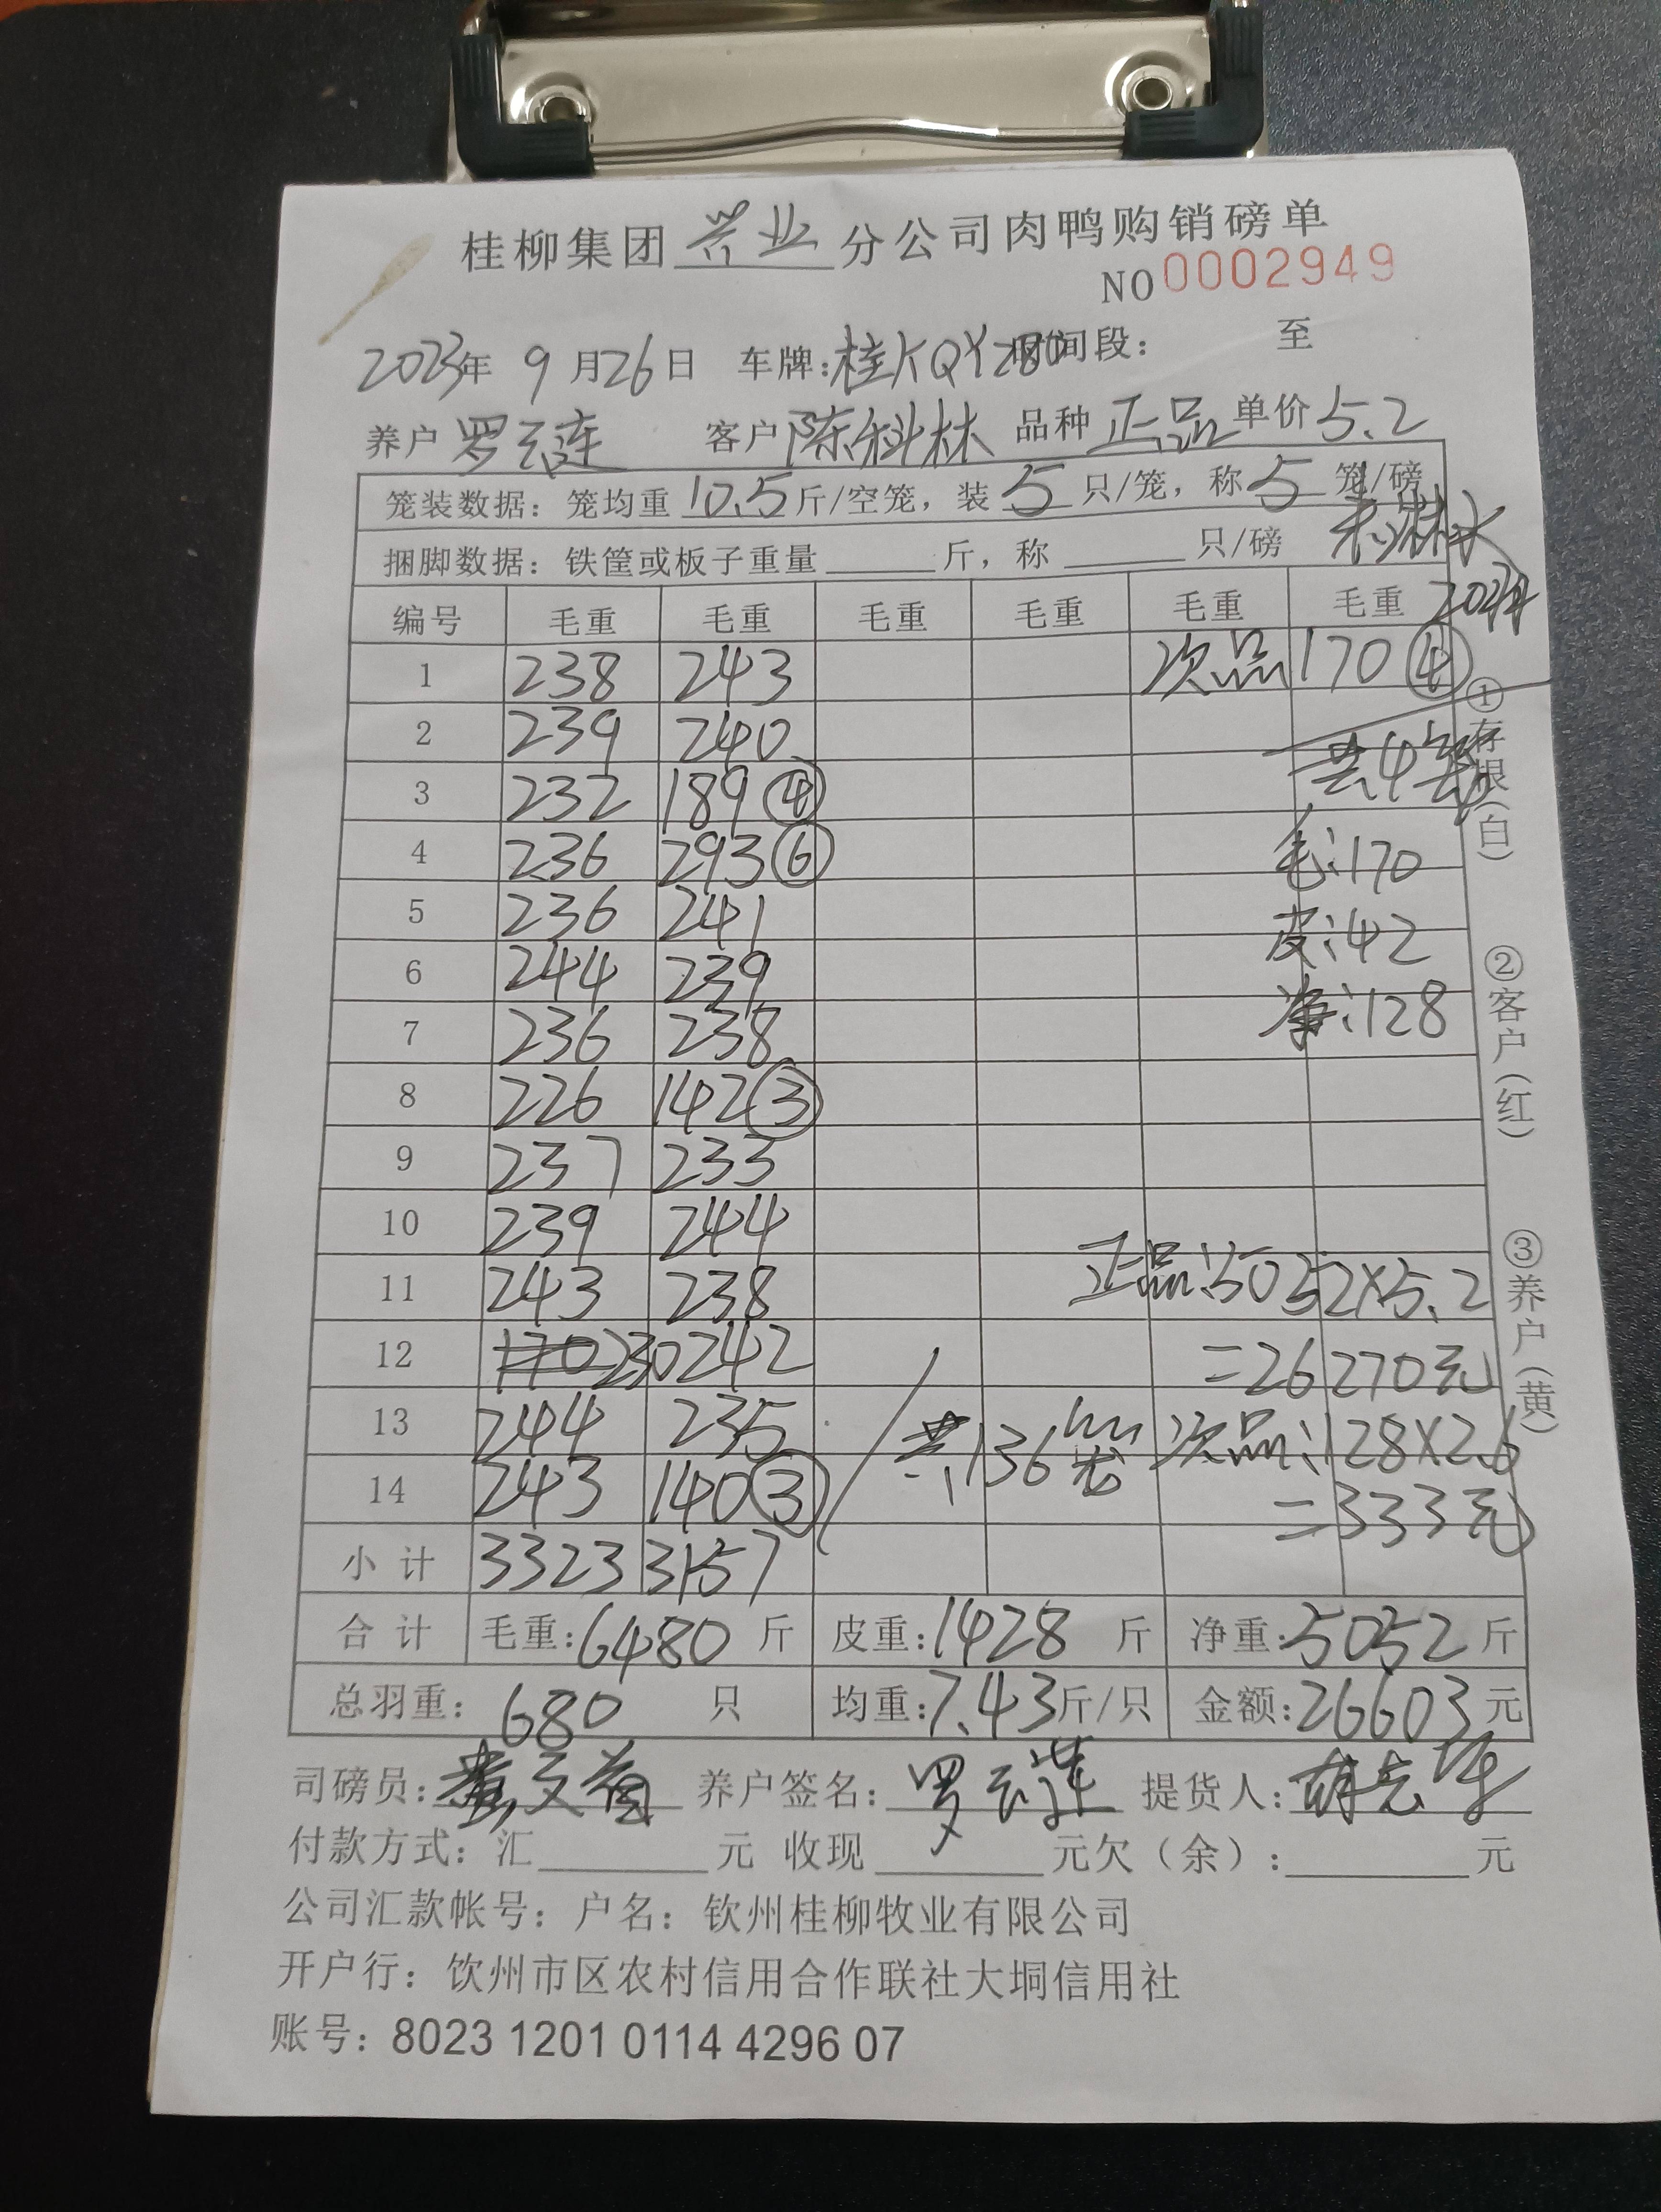 桂柳集团 兴业 分公司肉鸭购销磅单
NO 0002949
2023年 9月26日 车牌:桂KQY280 时间段: 至
养户 罗云连 客户 陈科林 品种 正品 单价 5.2
笼装数据: 笼均重 10.5 斤/空笼, 装 5 只/笼, 称 5 笼/磅
捆脚数据: 铁筐或板子重量 斤, 称 只/磅
编号 毛重 毛重 毛重 毛重 毛重 毛重
1 238 243 次品 170 ④
2 239 240 共4笼
3 232 189 ④
4 236 293 ⑥ 毛:170
5 236 241 皮:42
6 244 239 净:128
7 236 238
8 226 142 ③
9 237 233
10 239 244
11 243 238 正品:5052×5.2
12 230 242 =26270元
13 244 235 共136笼 次品:128×2.6
14 243 140 ③ =333元
小计 3323 3157
合计 毛重:6480 斤 皮重:1428 斤 净重:5052 斤
总羽重: 680 只 均重:7.43斤/只 金额:26603元
司磅员: 养户签名: 罗云莲 提货人:
付款方式: 汇 元 收现 元欠(余): 元
公司汇款帐号: 户名: 钦州桂柳牧业有限公司
开户行: 钦州市区农村信用合作联社大垌信用社
账号: 8023 1201 0114 4296 07
①存根(白)
②客户(红)
③养户(黄)